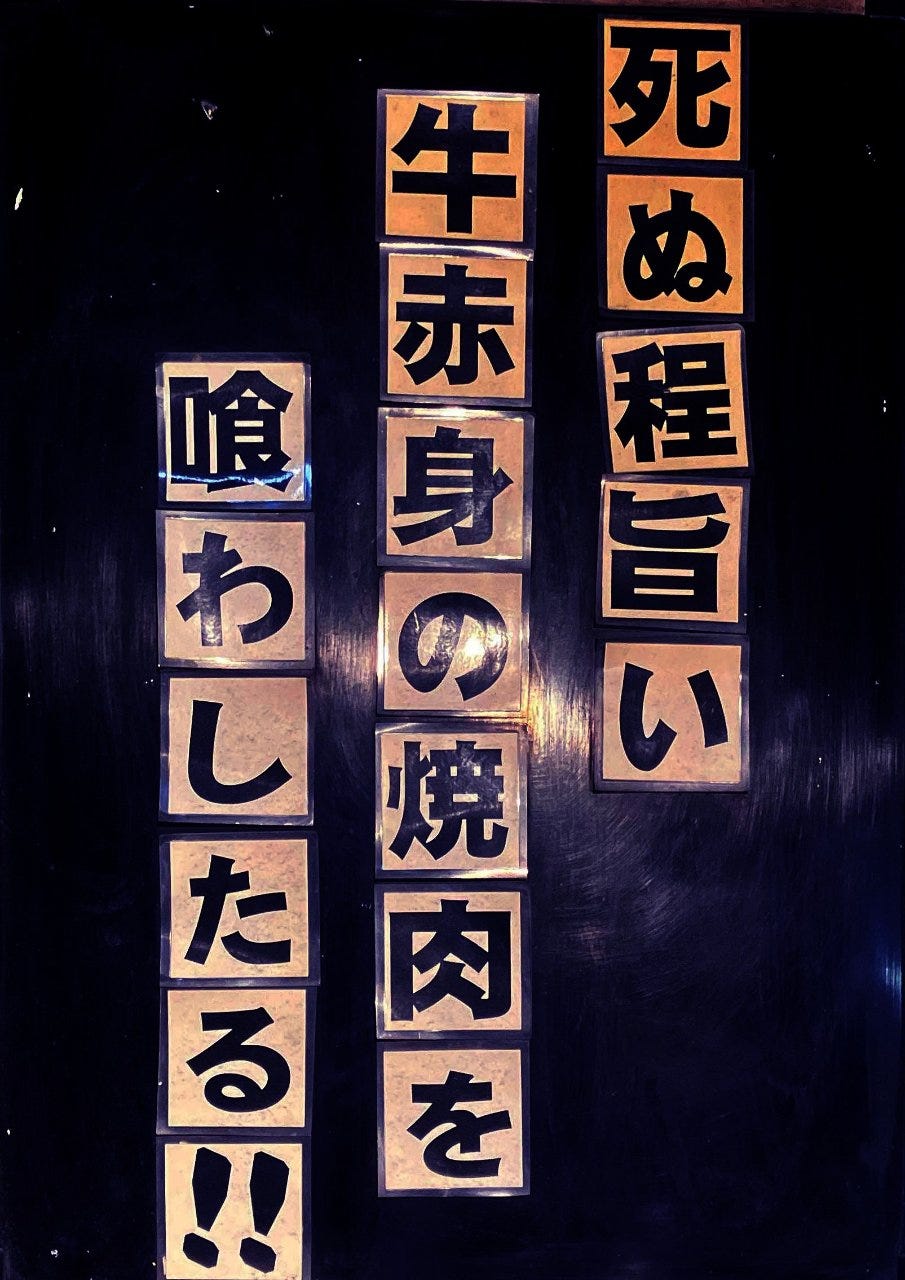 死ぬ程旨い
牛赤身の焼肉を
喰わしたる!!